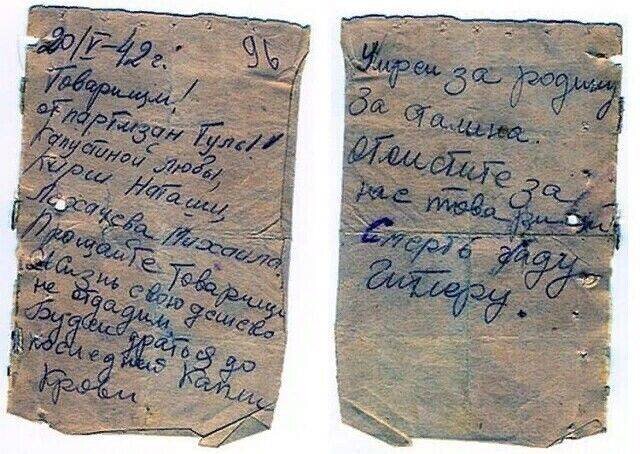 20/V-42 г.
96
Товарищи!
от партизан Тулы!
Капустиной Любы,
Наташи,
Лихачёва Михаила.
Прощайте Товарищи
Жизнь свою дешево
не отдадим.
Будем драться до
последней Капли
Крови
за родину
За Сталина.
Отомстите за
нас товарищи
Смерть гаду
Гитлеру.